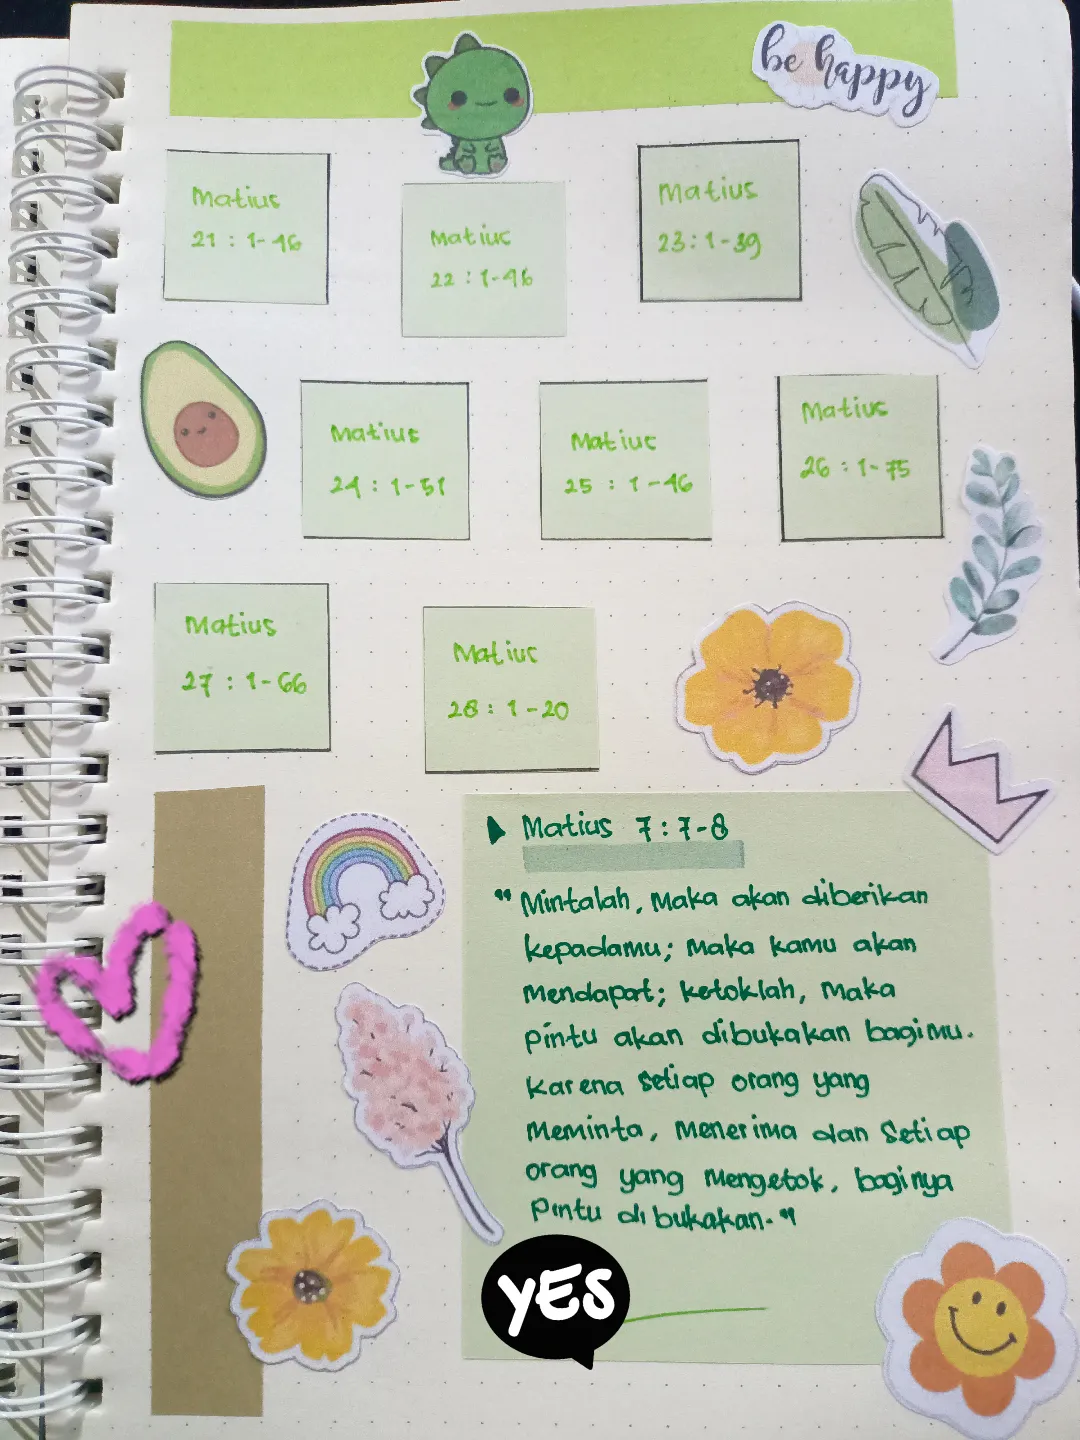 be happy
Matius
21 : 1-46
Matius
22 : 1-46
Matius
23 : 1-39
Matius
24 : 1-51
Matius
25 : 1-46
Matius
26 : 1-75
Matius
27 : 1-66
Matius
28 : 1-20
Matius 7:7-8
"Mintalah, Maka akan diberikan
kepadamu; Maka kamu akan
Mendapat; ketoklah, Maka
pintu akan dibukakan bagimu.
Karena setiap orang yang
Meminta, Menerima dan Setiap
orang yang Mengetok, baginya
Pintu dibukakan."
YES